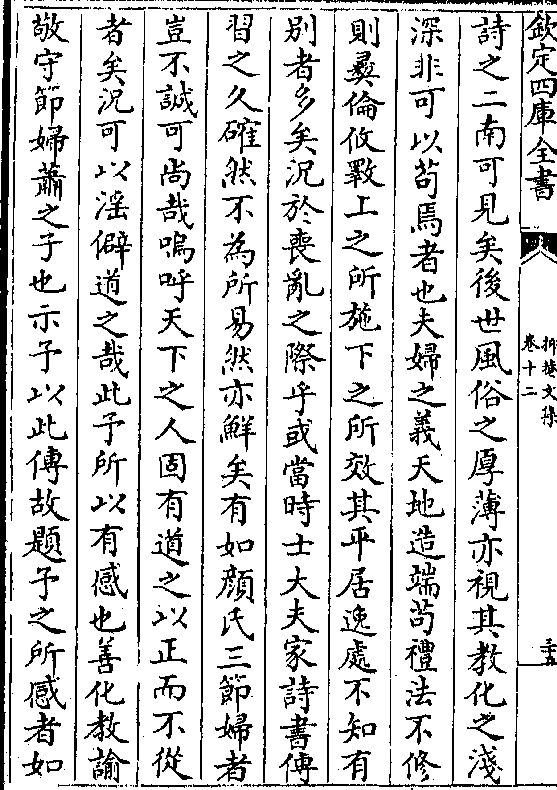 欽定四庫全書
卷十二
三十五
詩之二南可見矣後世風俗之厚薄亦視其教化之淺
深非可以茍焉者也夫婦之義天地造端茍禮法不修
則彛倫攸斁上之所施下之所效其平居逸處不知有
别者多矣況於喪亂之際乎或當時士大夫家詩書傳
習之久確然不為所易然亦鮮矣有如顔氏三節婦者
豈不誠可尚哉嗚呼天下之人固有道之以正而不從
者矣況可以滛僻道之哉此予所以有感也善化教諭
敬守節婦蕭之子也示予以此傳故題予之所感者如